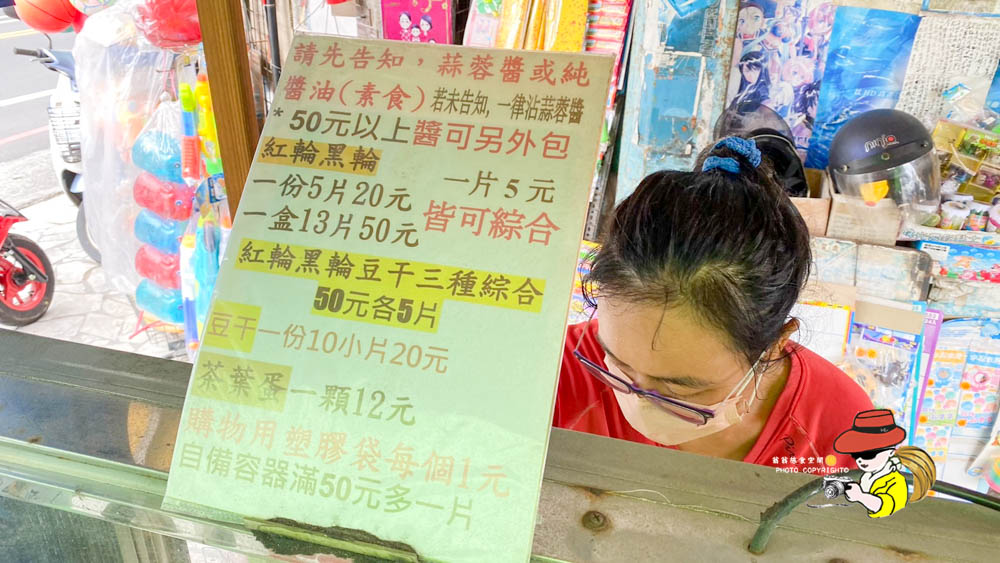 請先告知,蒜蓉醬或純
醬油(素食)若未告知,一律沾蒜蓉醬
*50元以上醬可另外包
紅輪黑輪
一份5片20元 一片5元
一盒13片50元 皆可綜合
紅輪黑輪豆干三種綜合
50元各5片
豆干一份10小片20元
茶葉蛋一顆12元
購物用塑膠袋每個1元
自備容器滿50元多一片
PHOTO COPYRIGHT©